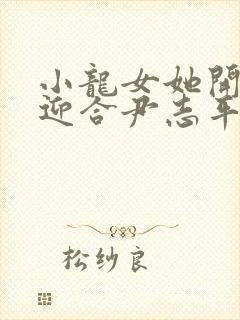 小龍女她開
迎合尹志平
松纱良